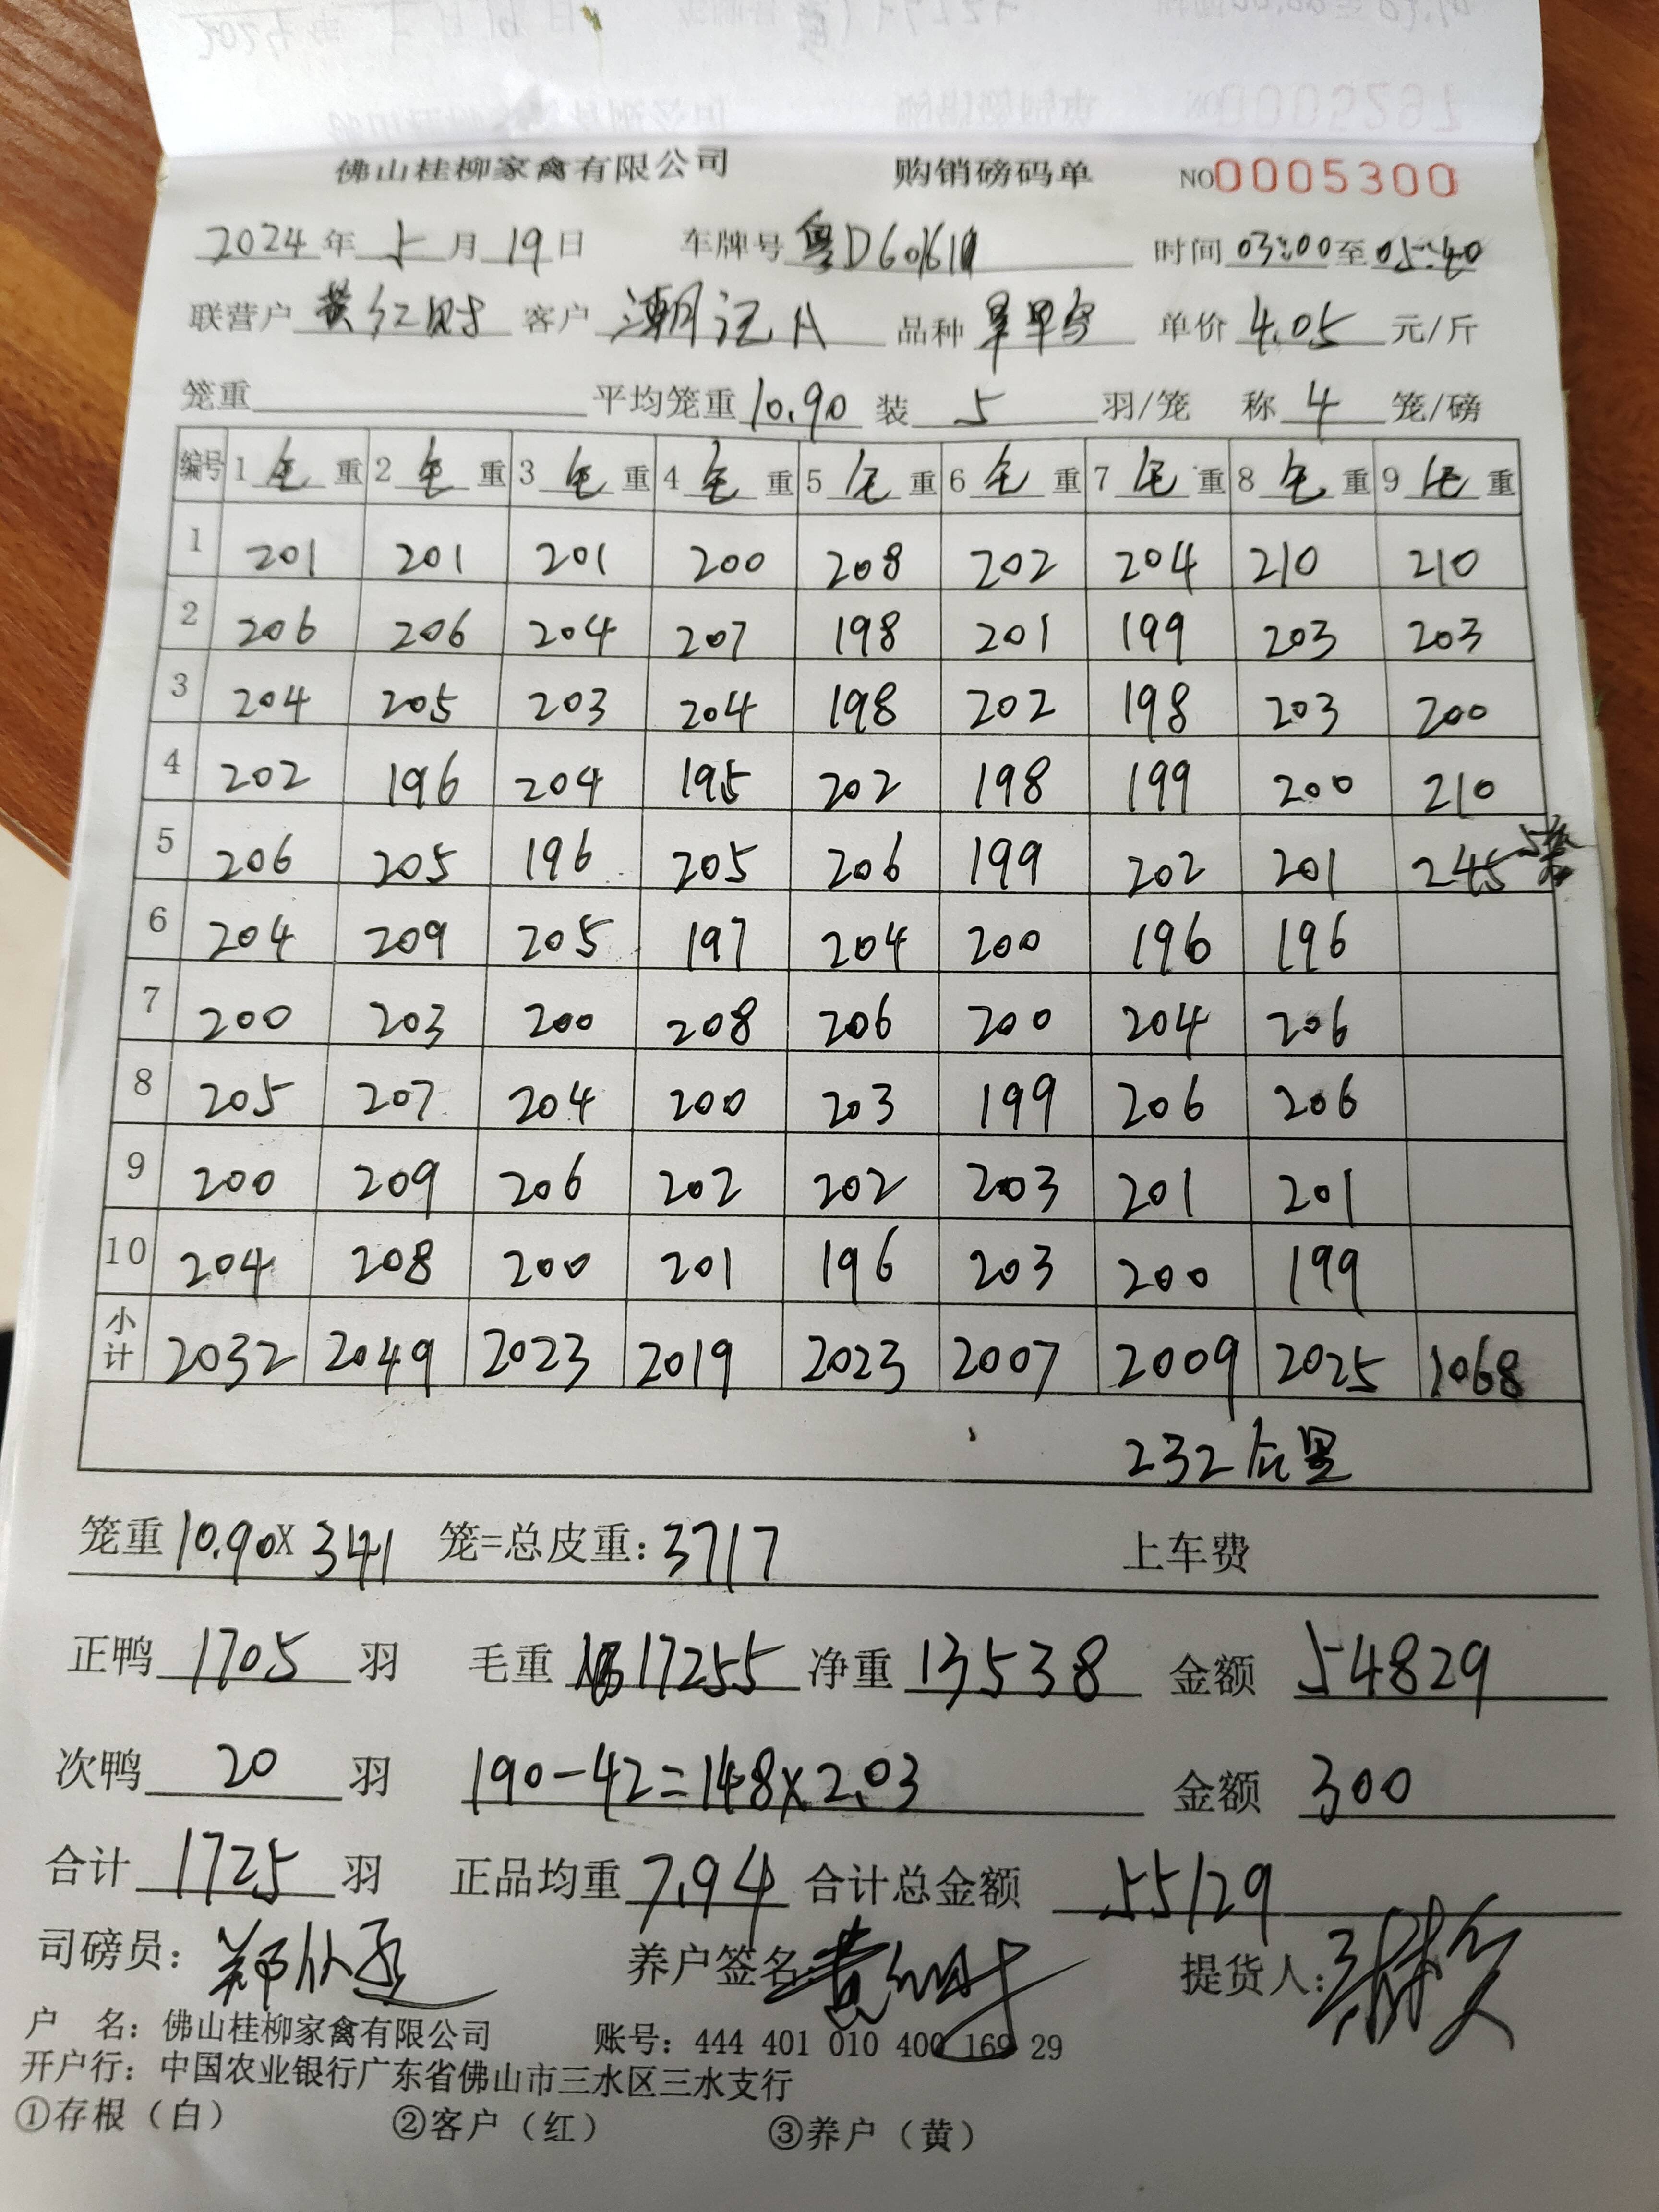 佛山桂柳家禽有限公司 购销磅码单 NO0005300
2024年 5月 19日 车牌号 粤D60161 时间 03:00至05:40
联营户 黄红财 客户 潮记A 品种 单价 4.05 元/斤
笼重 平均笼重 10.90 装 5 羽/笼 称 4 笼/磅
编号 1 毛 重 2 毛 重 3 毛 重 4 毛 重 5 毛 重 6 毛 重 7 毛 重 8 毛 重 9 毛 重
1 201 201 201 200 208 202 204 210 210
2 206 206 204 207 198 201 199 203 203
3 204 205 203 204 198 202 198 203 200
4 202 196 204 195 202 198 199 200 210
5 206 205 196 205 206 199 202 201 245 5笼
6 204 209 205 197 204 200 196 196
7 200 203 200 208 206 200 204 206
8 205 207 204 200 203 199 206 206
9 200 209 206 202 202 203 201 201
10 204 208 200 201 196 203 200 199
小计 2032 2049 2023 2019 2023 2007 2009 2025 1068
232公里
笼重 10.90X 341 笼=总皮重: 3717 上车费
正鸭 1705 羽 毛重 17255 净重 13538 金额 54829
次鸭 20 羽 190-42=148×2.03 金额 300
合计 1725 羽 正品均重 7.94 合计总金额 55129
司磅员: 养户签名: 黄红财 提货人:
户 名: 佛山桂柳家禽有限公司 账号: 444 401 010 400 169 29
开户行: 中国农业银行广东省佛山市三水区三水支行
①存根（白） ②客户（红） ③养户（黄）